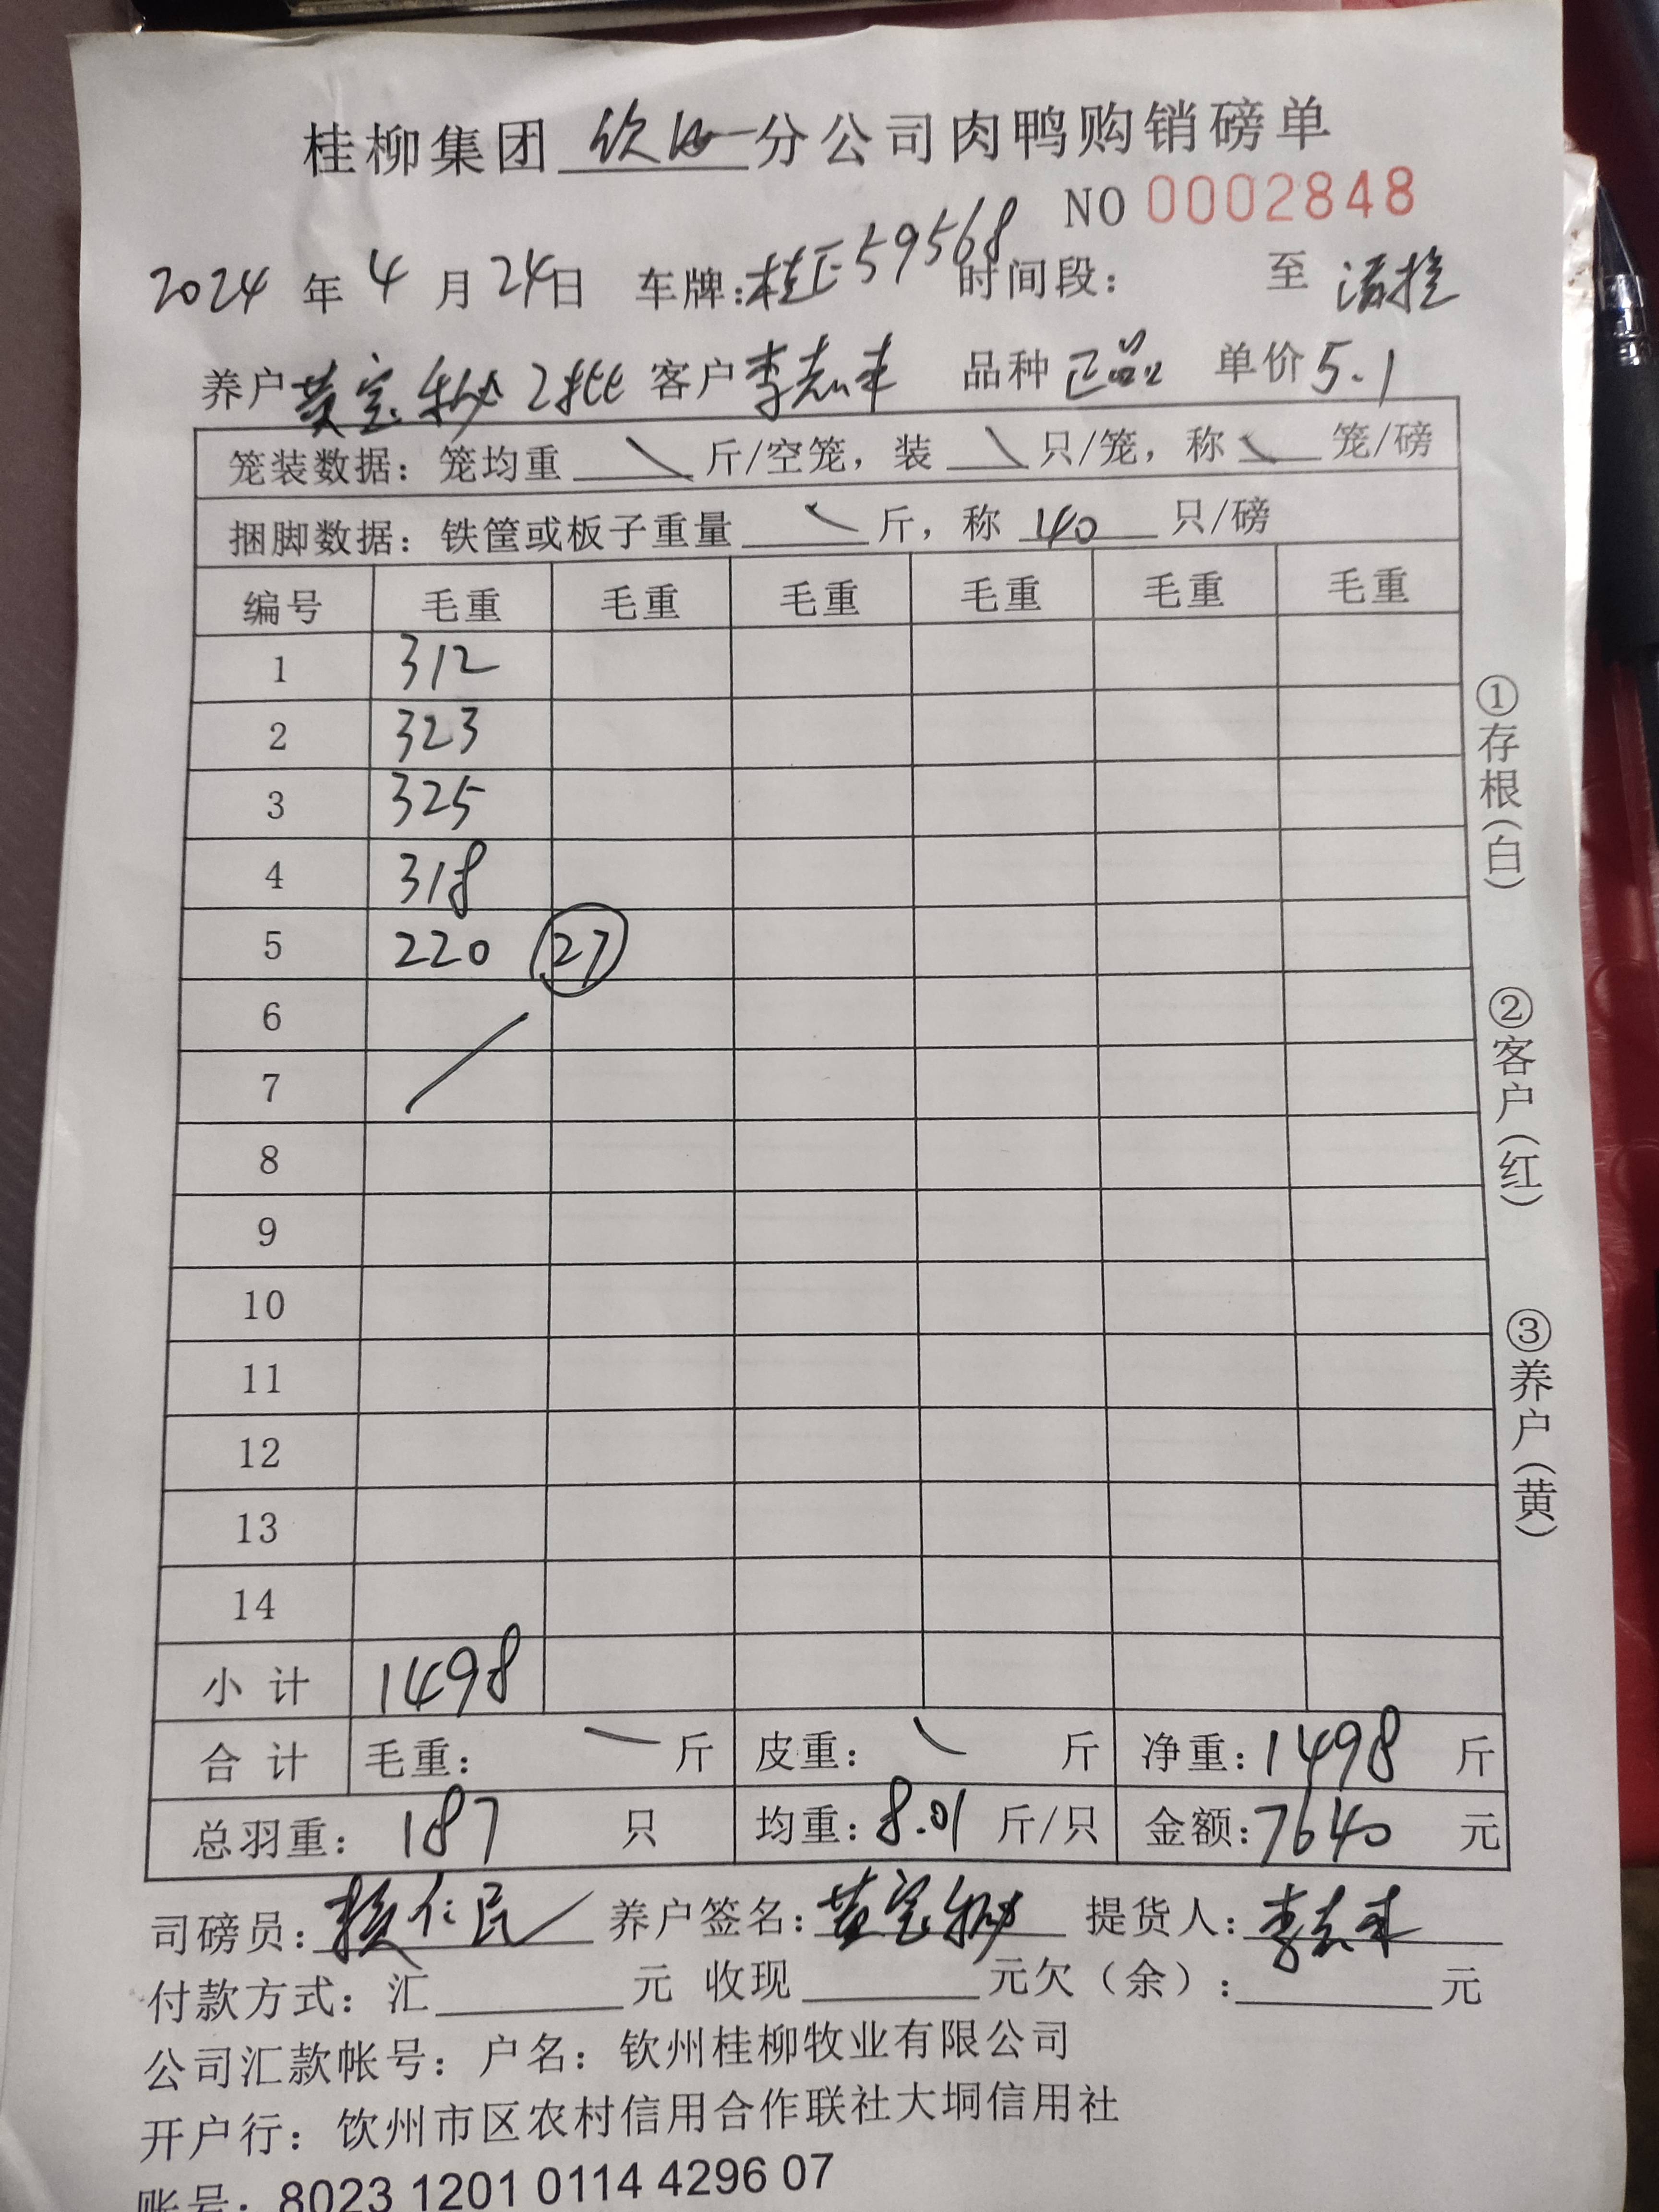 桂柳集团 钦州 分公司肉鸭购销磅单
NO 0002848
2024 年 4 月 24日 车牌:桂E59568 时间段: 至
养户 黄宝 2批 客户 李志丰 品种 正品 单价 5.1
笼装数据: 笼均重 \ 斤/空笼, 装 \ 只/笼, 称 \ 笼/磅
捆脚数据: 铁筐或板子重量 \ 斤, 称 40 只/磅
编号 毛重 毛重 毛重 毛重 毛重 毛重
1 312
2 323
3 325
4 318
5 220 27
6
7
8
9
10
11
12
13
14
小计 1498
合计 毛重: 斤 皮重: \ 斤 净重: 1498 斤
总羽重: 187 只 均重: 8.01 斤/只 金额: 7640 元
司磅员: 仁民 养户签名: 黄宝 提货人: 李志丰
付款方式: 汇 元 收现 元欠（余）: 元
公司汇款帐号: 户名: 钦州桂柳牧业有限公司
开户行: 钦州市区农村信用合作联社大垌信用社
账号: 8023 1201 0114 4296 07
①存根（白）
②客户（红）
③养户（黄）